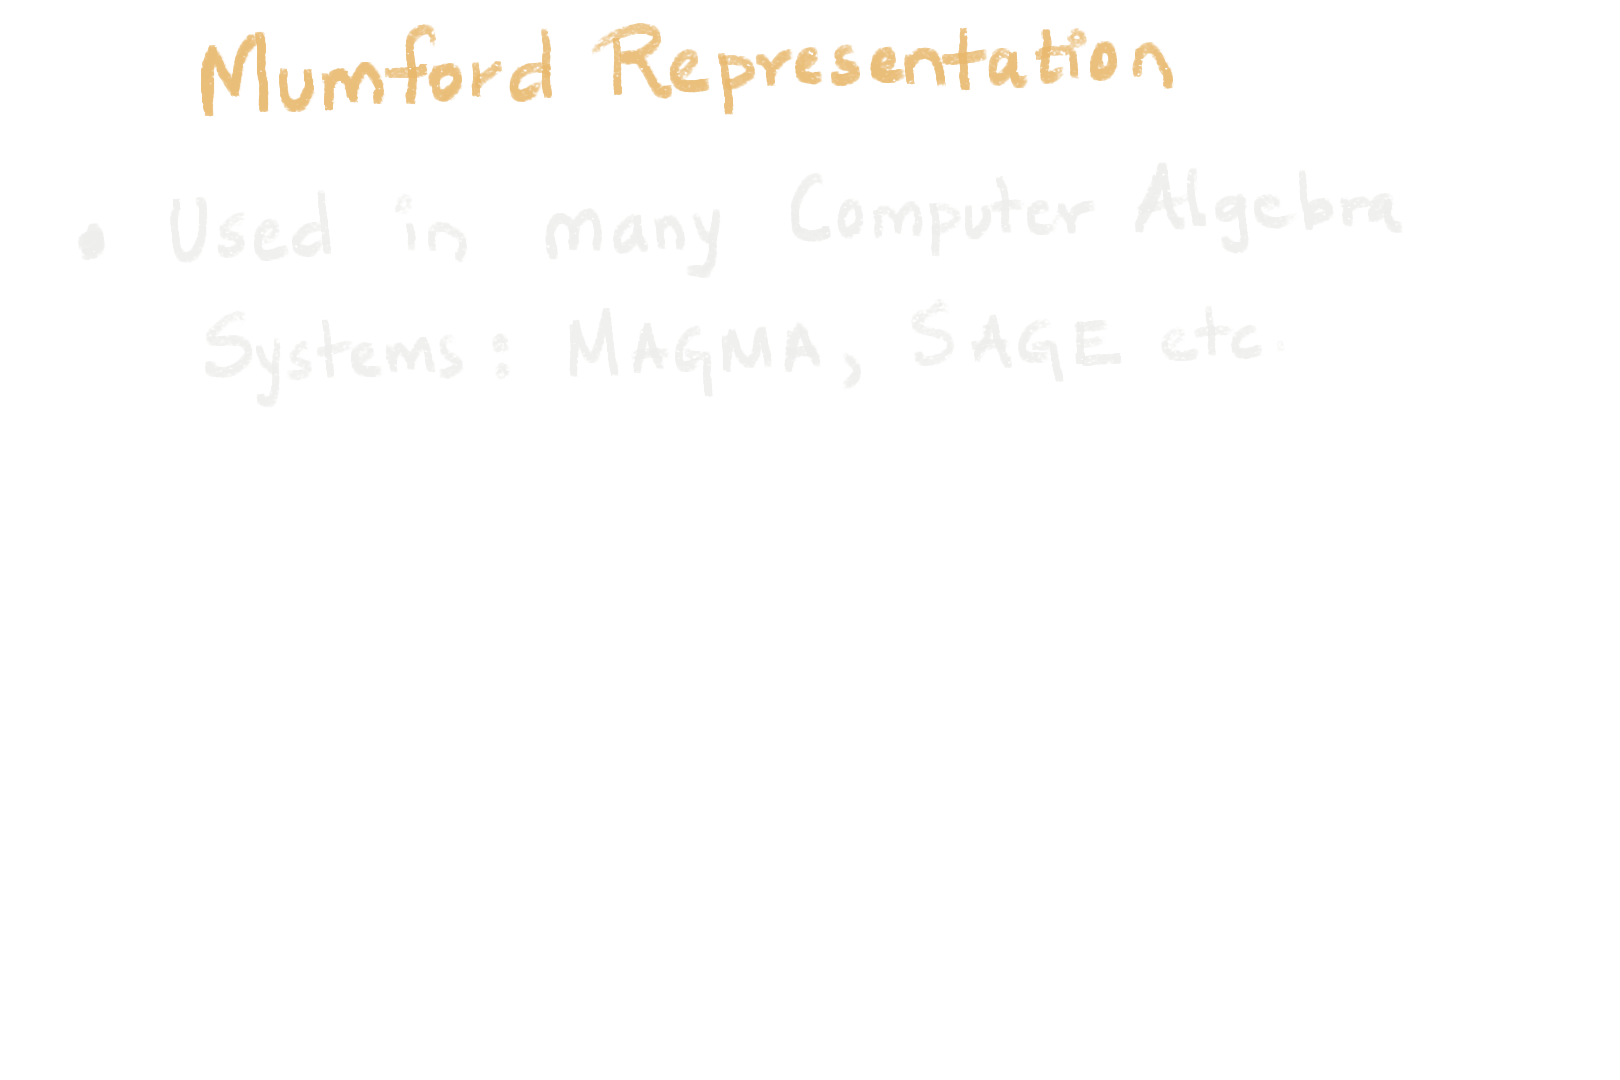 Mumford Representation
• Used in many Computer Algebra
Systems: MAGMA, SAGE etc.